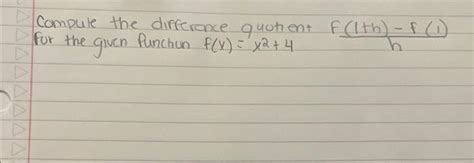 Compute the difference quotient f(1+h) - f(1)/h
for the given function f(x) = x² + 4